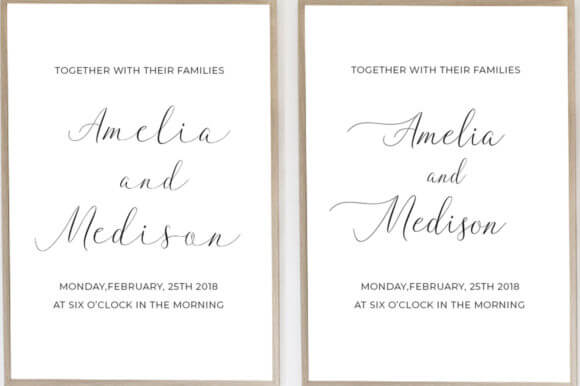 TOGETHER WITH THEIR FAMILIES
Amelia
and
Medison
MONDAY,FEBRUARY, 25TH 2018
AT SIX O'CLOCK IN THE MORNING
TOGETHER WITH THEIR FAMILIES
Amelia
and
Medison
MONDAY,FEBRUARY, 25TH 2018
AT SIX O'CLOCK IN THE MORNING